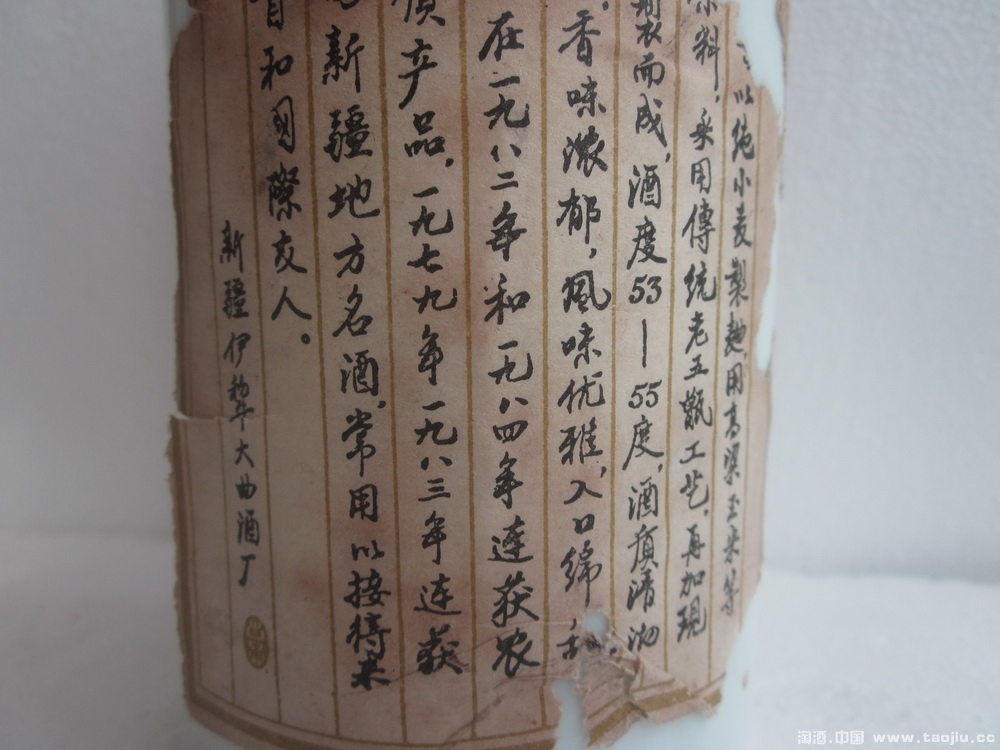 以纯小麦製麯,用高梁玉米等
料,采用傳统老五甑工艺,再加現
而成,酒度53—55度,酒质清
香味濃郁,風味优雅,入口綿
在一九八二年和一九八四年連获农
质产品,一九七九年一九八三年连获
新疆地方名酒,常用以接待来
和國際友人。
新疆伊犂大曲酒厂
淘酒.中国 www.taojiu.cc